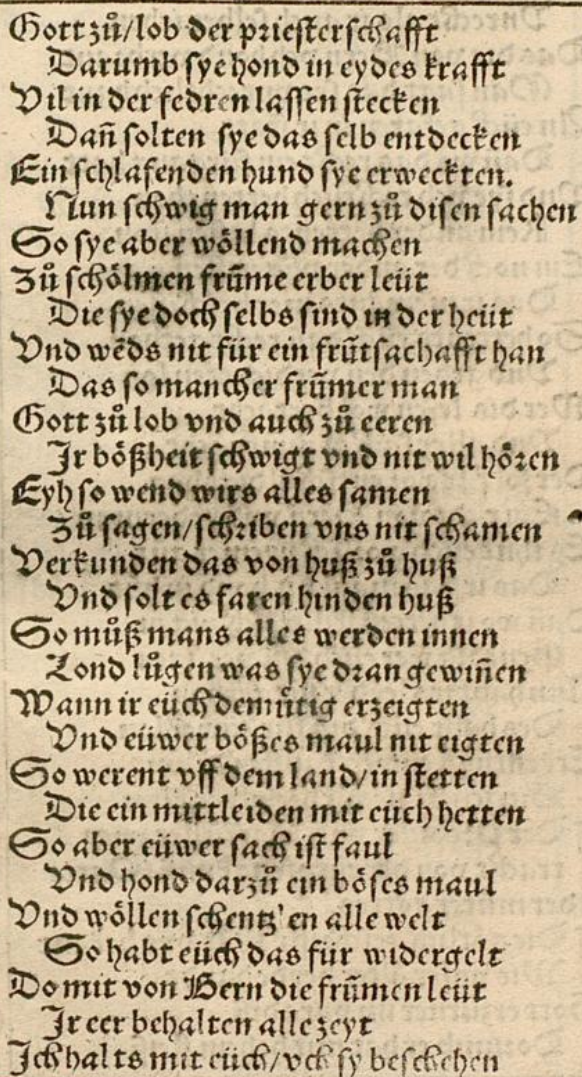 Gott zů/lob der priesterschafft
Darumb sye hond in eydes krafft
Vil in der fedren lassen stecken
Dañ solten sye das selb entdecken
Ein schlafenden hund sye erweckten.
Nun schwig man gern zů disen sachen
So sye aber wöllend machen
Zů schölmen frūme erber leüt
Die sye doch selbs sind in der heüt
Vnd wēds nit für ein frūtsachafft han
Das so mancher frūmer man
Gott zů lob vnd auch zů eeren
Ir bößheit schwigt vnd nit wil hören
Eyh so wend wirs alles samen
Zů sagen/schriben vns nit schamen
Verkunden das von huß zů huß
Vnd solt es faren hinden huß
So můß mans alles werden innen
Lond lůgen was sye dran gewiñen
Wann ir eüch demütig erzeigten
Vnd eüwer bößes maul nit eigten
So werent vff dem land/in stetten
Die ein mittleiden mit eüch hetten
So aber eüwer sach ist faul
Vnd hond darzů ein böses maul
Vnd wöllen schentz'en alle welt
So habt eüch das für widergelt
Do mit von Bern die frūmen leüt
Ir eer behalten alle zeyt
Ich halts mit eüch/vch sy beschehen